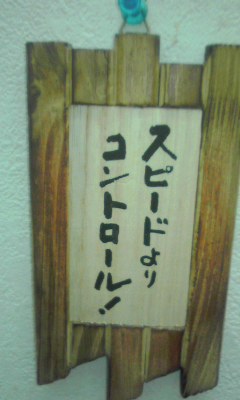 スピードより
コントロール!